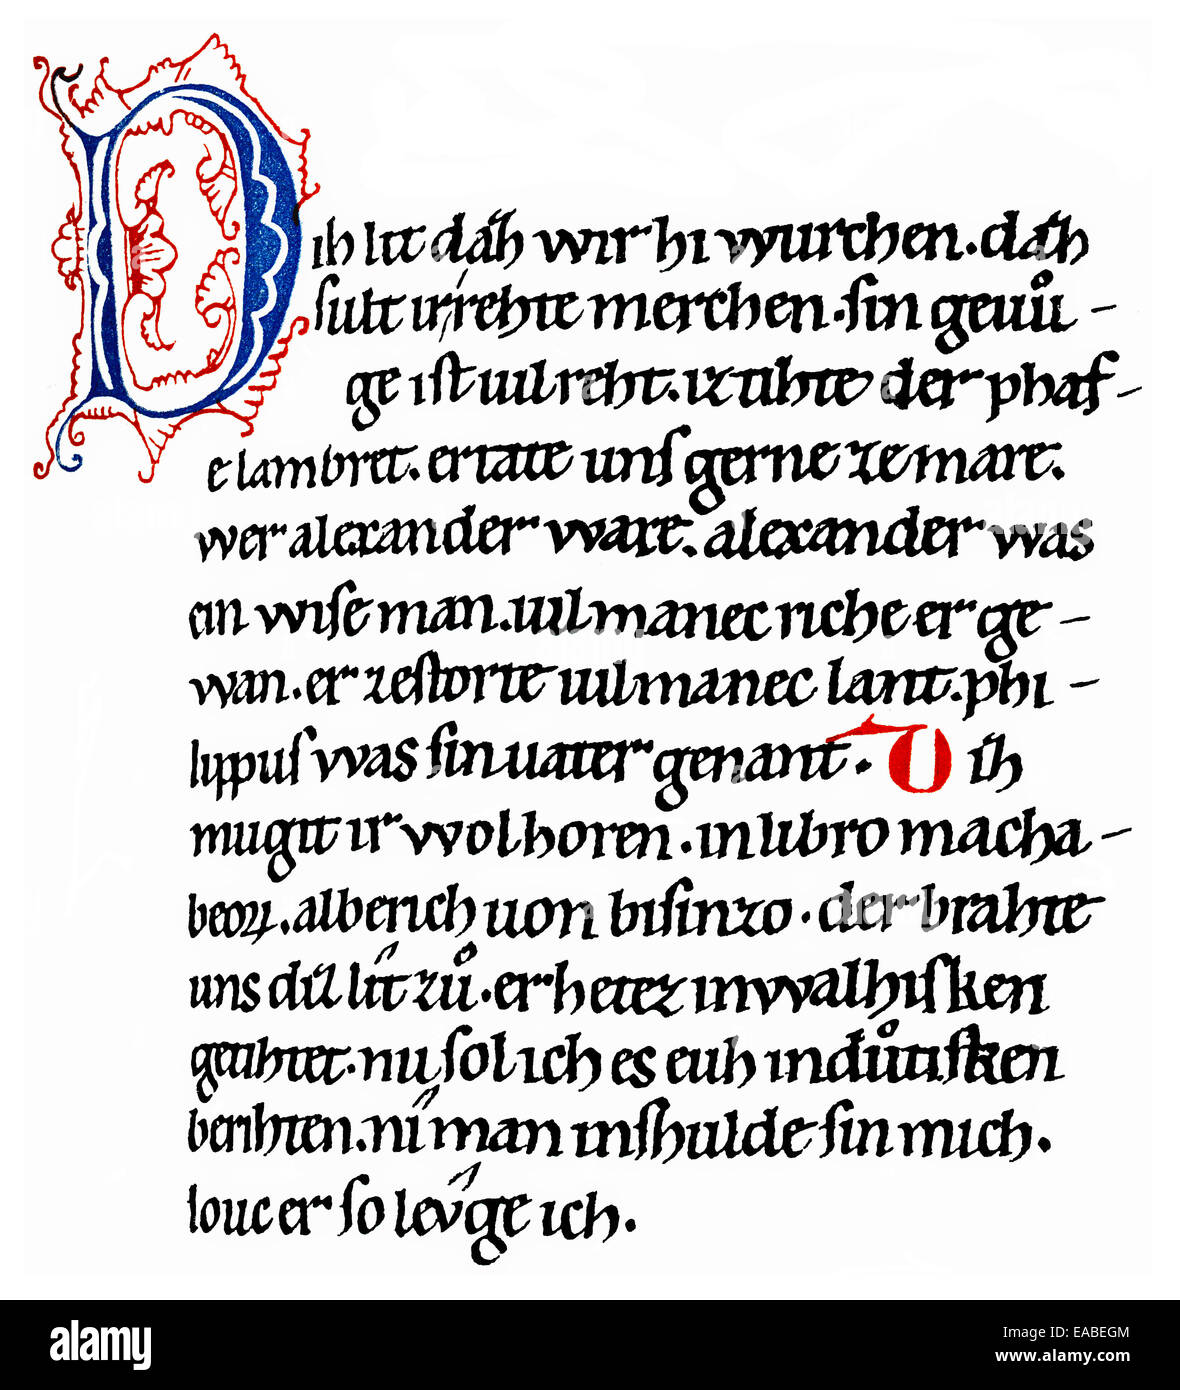 Dih lit daz wir hi wurchen. daz
ſult ir rehte merchen. ſin gevů-
ge iſt uil reht. iz tihte der phaf-
e lambret. er tate unſ gerne ze mare.
wer alexander ware. alexander was
ein wiſe man. uil manec riche er ge-
wan. er zeſtorte uil manec lant. phi-
lippuſ was ſin uater genant. Diz
mugit ir wol horen. in libro macha-
beoꝝ. alberich uon biſinzo. der brahte
uns diz lît zů. er hetez in walhiſken
getihtet. nu ſol ich es euh in důtiſken
berihten. nîman inſhulde ſin mich.
louc er ſo levge ich.
alamy
alamy
Image ID: EABEGM
www.alamy.com